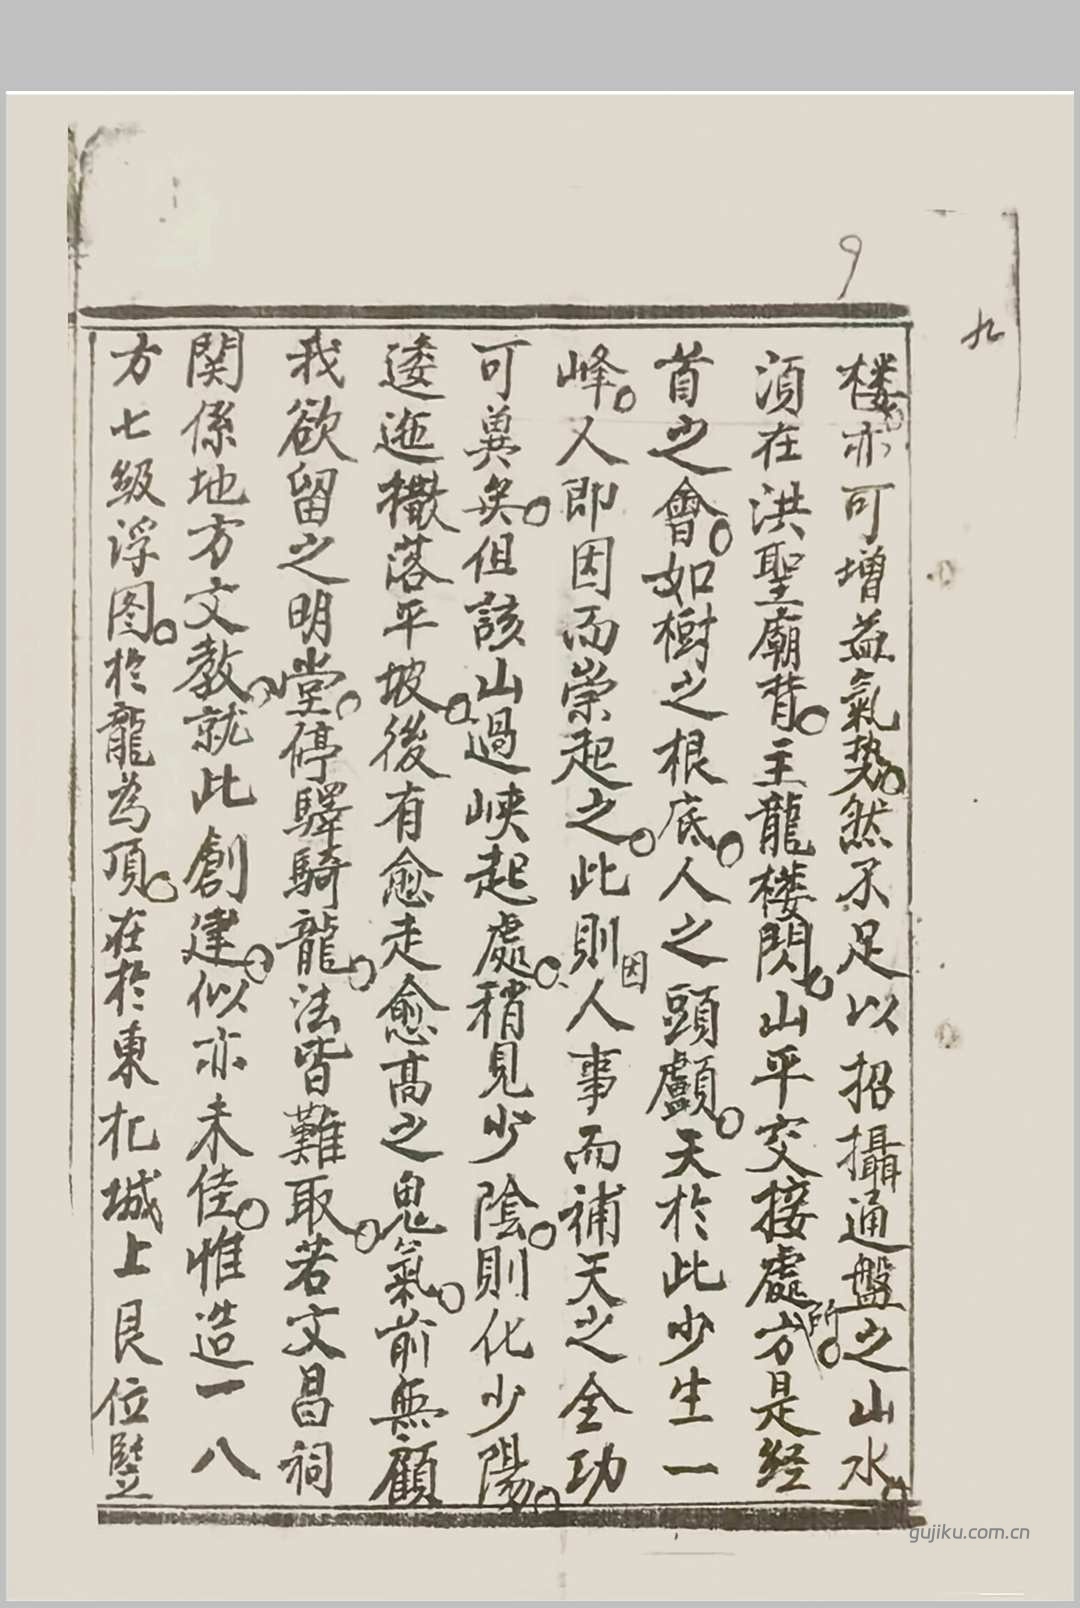 9
九
楼。亦可增益氣勢。然不足以招攝通盤之山水。
湏在洪聖廟背。主龍楼閃。山平交接處所方。是经
首之會。如樹之根底。人之頭顱。天於此少生一
峰。人即因而崇起之。此則因人事而補天之全功
可兾矣。但該山過峽起處。稍見少陰。則化少陽。
逶迤撒落平坡。後有愈走愈高之鬼氣。前無顧
我欲留之明堂。停驛騎龍。法皆難取。若文昌祠
関係地方文教。就此創建。似亦未佳。惟造一八
方七級浮图。於龍為頂。在於東北城上艮位竪
gujiku.com.cn